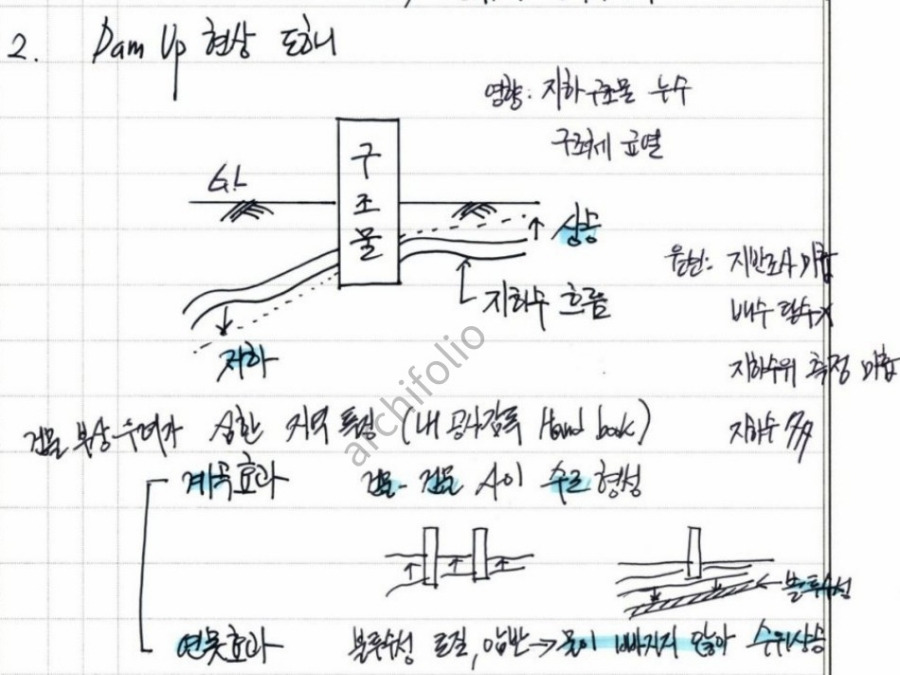 2. Dam Up 현상 도해
영향: 지하구조물 누수
구조체 균열
구조물
G.L
상승
원인: 지반조사 미흡
지하수 흐름
배수 탈수 X
저하
지하수위 측정 미흡
건물 부상 우려가 심한 지역 특징 (내 공사감독 Hand book)
지하수
계곡효과 건물-건물 사이 수로 형성
불투수성
연못효과 불투수성 토질, 암반 → 물이 빠지지 않아 수위상승
archifolio